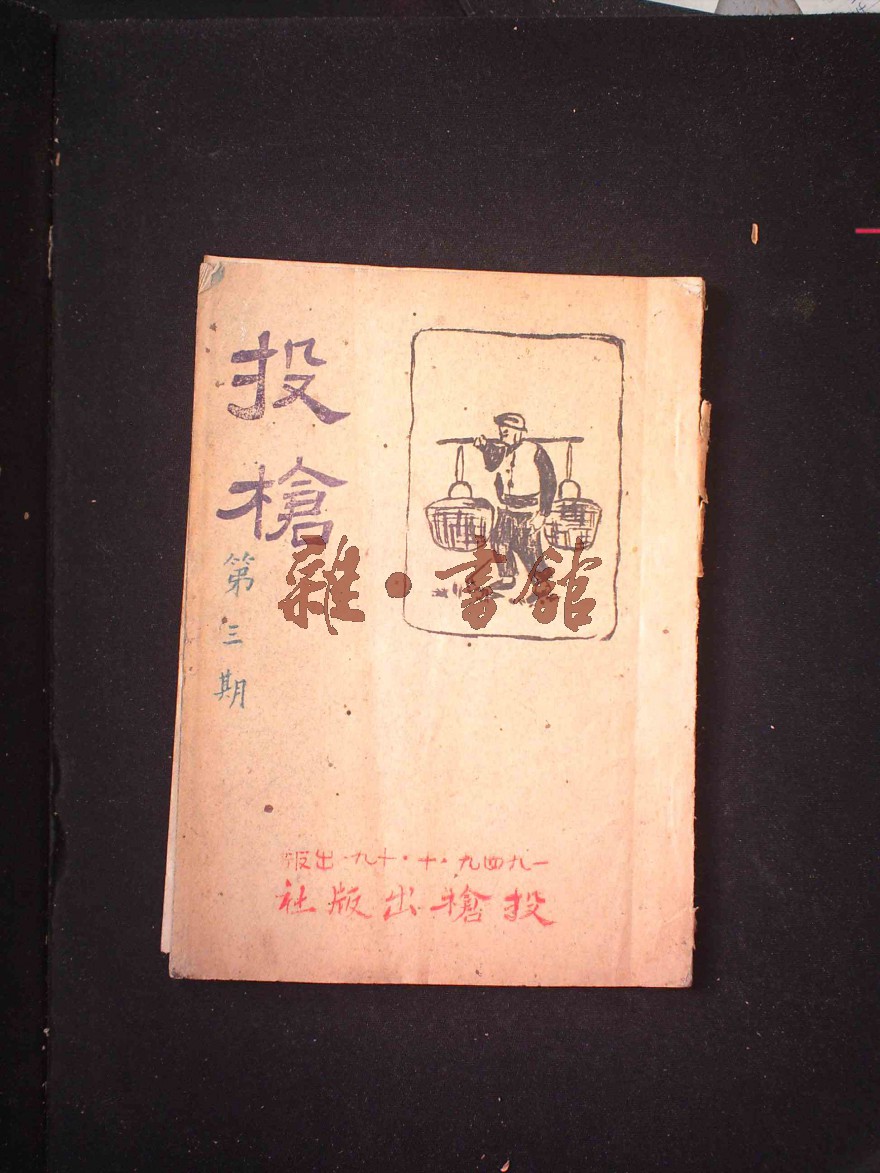 投槍
第三期
雜·書館
一九四九·十·十九·出版
投槍出版社